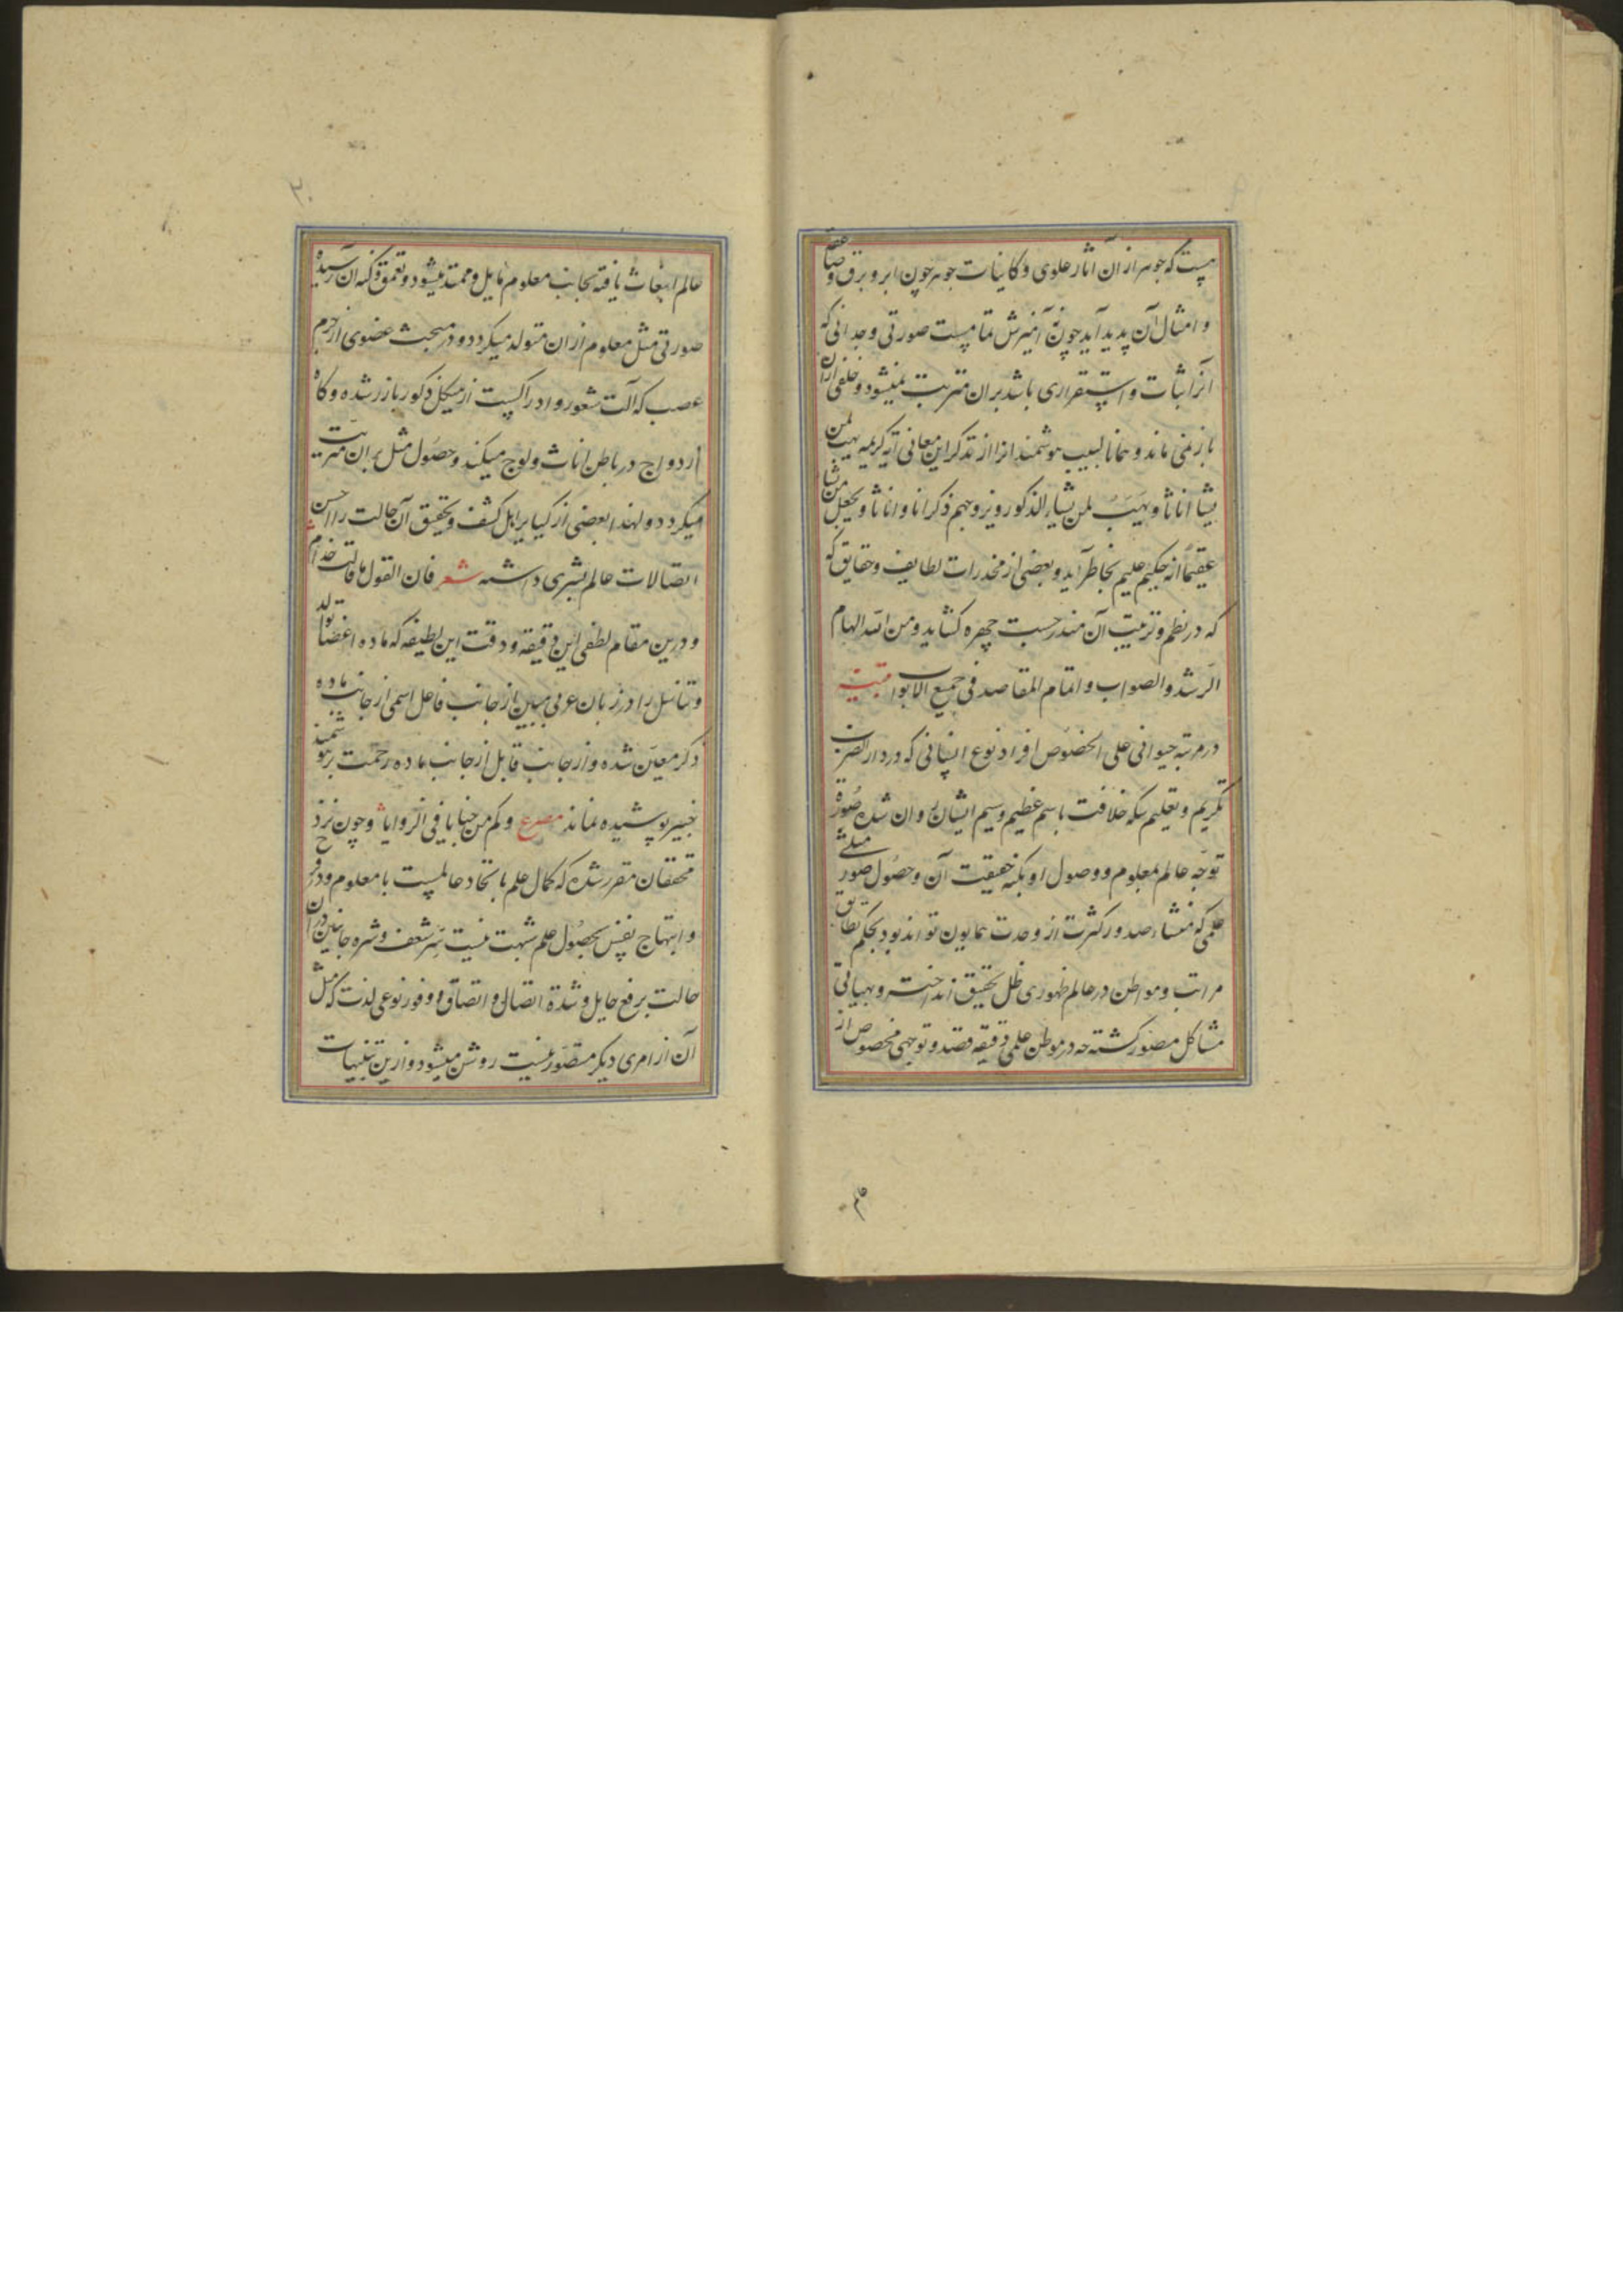 که جوهر از آن آثار علوی و کاینات جو هر چون ابر و برق و
و امثال آن پدید آید چون آمیزش صورتی وجدانی که
آنرا ثبات و استقراری باشد بران مترتب نمیشود و خلفی ازان
باز نمی ماند و همانا لبیب هوشمند را از تذکر این معانی آیه کریمه یهب لمن
یشا اناثا و یهب لمن یشاء الذکور و یزوجهم ذکرانا و اناثا و یجعل من یشا
عقیما انه حکیم علیم بخاطر آید و بعضی از مخدرات لطایف و حقایق که
که در نظم و ترتیب آن مندرجست چهره کشاید و من الله الهام
الرشد والصواب و اتمام المقاصد فی جمیع الابواب
در مرتبه حیوانی علی الخصوص افراد نوع انسانی که در دار الضرب
تکریم و تعلیم سکه خلافت باسم عظیم وسیم ایشان روان شده صورة
توجه عالم بمعلوم و وصول او بکنه حقیقت آن و حصول صور مثلی
علمی که منشاء صدور کثرت از وحدت همایون تواند بود بحکم تطابق
مراتب و مواطن در عالم ظهوری ظل تحقیق انداخته و بهیاتی
مشاکل مصور کشته چه در موطن علمی دقیقه قصد و توجهی مخصوص از
۲۰
عالم انبعاث یافته بجانب معلوم مایل و ممتد میشود و بتعمق در کنه آن رسیده
صورتی مثل معلوم ازان متولد میکردد و در مبحث عضوی از جرم
عصب که آلت شعور و ادراکست از هیکل ذکور بارز شده و کاه
ازدواج در باطن اناث ولوج میکند و حصول مثل بران مترتب
میکردد و لهذا بعضی از کبایر اهل کشف و تحقیق آن حالت را احسن
اتصالات عالم بشری داشته شعر فان القول ما قالت حذام
و درین مقام لطفی این دقیقه و دقت این لطیفه که ماده اعضا تولد
و تناسل را در زبان عربی مبین از جانب فاعل اسمی از جانب ماده
ذکر معین شده و از جانب قابل از جانب ماده رحمت بر هوشمند
خبیر پوشیده نماند مصرع و کم من خبایا فی الزوایا و چون نزد
محققان مقرر شده که کمال علم باتحاد عالمست با معلوم و
و ابتهاج نفس بحصول علم شهت نیست سر شعف و شره جانبین دران
حالت برفع حایل و شدة اتصال و اتصاق و وفور نوعی لذت که مثل
آن از امری دیکر متصور نیست روشن میشود و ازین تنبیهات